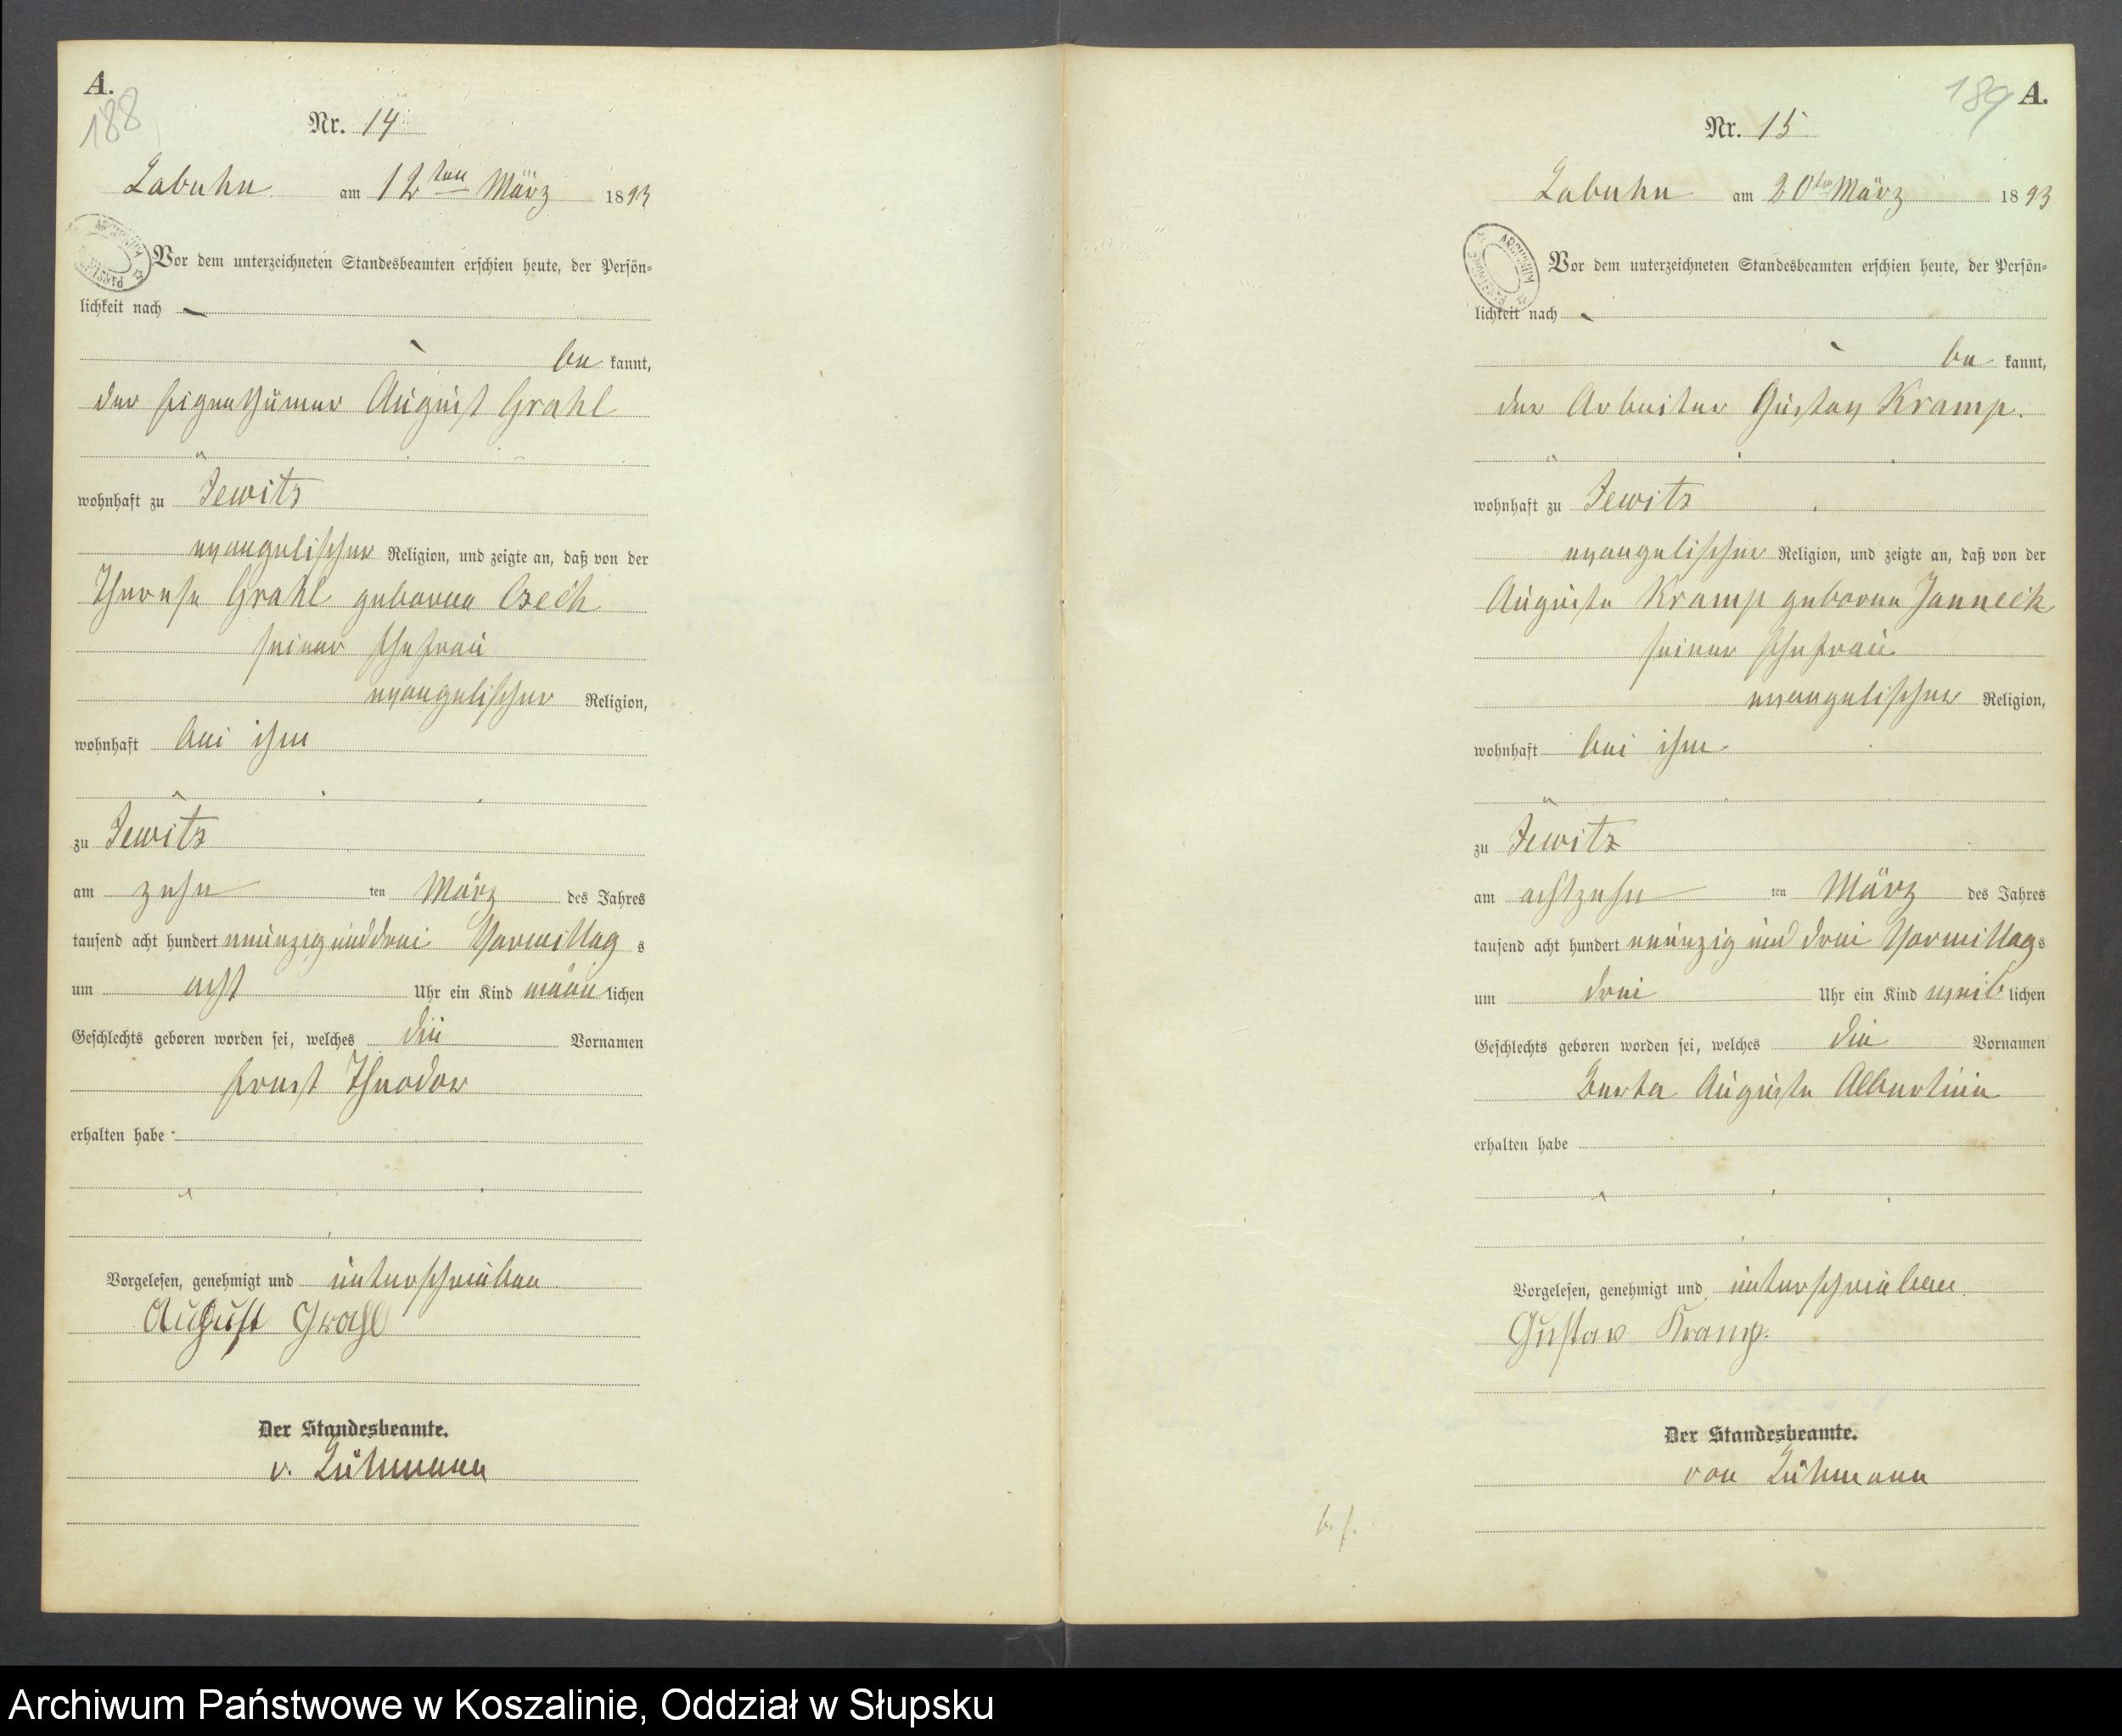 A.
188
Nr. 14
Labuhn am 12ten März 1893
Vor dem unterzeichneten Standesbeamten erschien heute, der Persön=
lichkeit nach
be kannt,
der Eigenthümer August Grahl
wohnhaft zu Jewitz
evangelischer Religion, und zeigte an, daß von der
Therese Grahl geborene Czech
seiner Ehefrau
evangelischer Religion,
wohnhaft bei ihm
zu Jewitz
am zehn ten März des Jahres
tausend acht hundert neunzig und drei Vormittag s
um acht Uhr ein Kind männ lichen
Geschlechts geboren worden sei, welches die Vornamen
Ernst Theodor
erhalten habe
Vorgelesen, genehmigt und unterschrieben
August Grahl
Der Standesbeamte.
v. Lühmann
189 A.
Nr. 15
Labuhn am 20ten März 1893
Vor dem unterzeichneten Standesbeamten erschien heute, der Persön=
lichkeit nach
be kannt,
der Arbeiter Gustav Kramp.
wohnhaft zu Jewitz
evangelischer Religion, und zeigte an, daß von der
Auguste Kramp geborene Janneck
seiner Ehefrau
evangelischer Religion,
wohnhaft bei ihm
zu Jewitz
am achtzehn ten März des Jahres
tausend acht hundert neunzig und drei Vormittag s
um drei Uhr ein Kind weib lichen
Geschlechts geboren worden sei, welches die Vornamen
Berta Auguste Albertine
erhalten habe
Vorgelesen, genehmigt und unterschrieben
Gustav Kramp.
Der Standesbeamte.
von Lühmann
Archiwum Państwowe w Koszalinie, Oddział w Słupsku